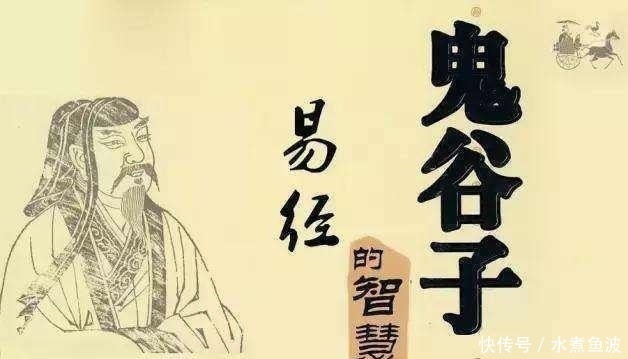 鬼谷子
易经
的智慧
快传号／水煮鱼波